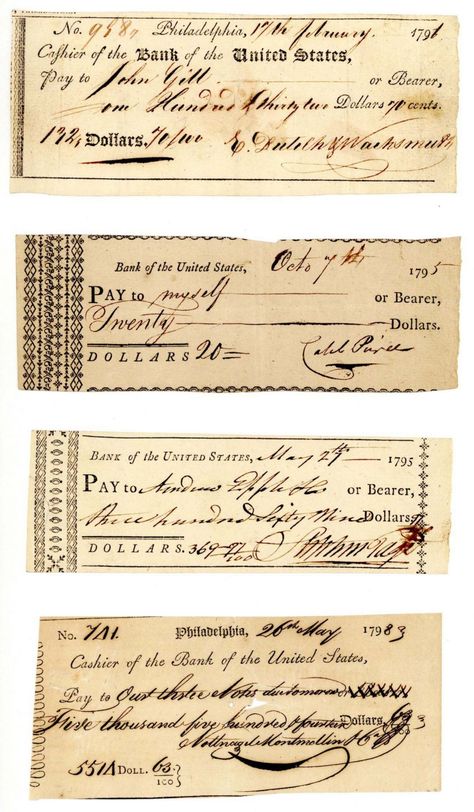 No. 958 Philadelphia, 17th february 1791
Cashier of the Bank of the United States,
Pay to John Gill or Bearer,
one Hundred & thirty two Dollars 70 cents.
132, Dollars. 70/100
Octo 7th
Bank of the United States, 1795
PAY to myself or Bearer,
Twenty Dollars.
DOLLARS 20=
BANK of the UNITED STATES, May 2th 1795
PAY to Andrew Epple & Co or Bearer,
three hundred Sixty Nine Dollars
DOLLARS. 369 97/100
No. 741. Philadelphia, 26th May 1798
Cashier of the Bank of the United States,
Pay to Our three Notes due tomorrow
Five thousand five hundred & fourteen Dollars, 63
Nottnagel Montmollin & Co
5514 DOLL. 63/100